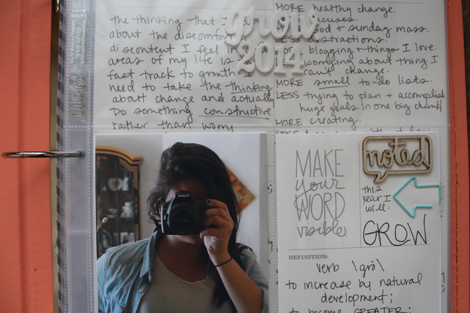 the thinking that I
about the discomfort
discontent I feel
areas of my life is
fast track to growth
need to take the thinking
about change and actually
Do something constructive
rather than worry
grow
2014
MORE healthy change.
excuses.
God + sunday mass.
distractions
blogging + things I love.
worrying about thing I
can't change.
MORE small to-do lists
LESS trying to plan + accomplish
huge goals in one big chunk
MORE creating.
LESS
MAKE
your
WORD
visible
noted
this
year I
will:
GROW
DEFINITION:
verb \grō\
to increase by natural
development;
to become GREATER